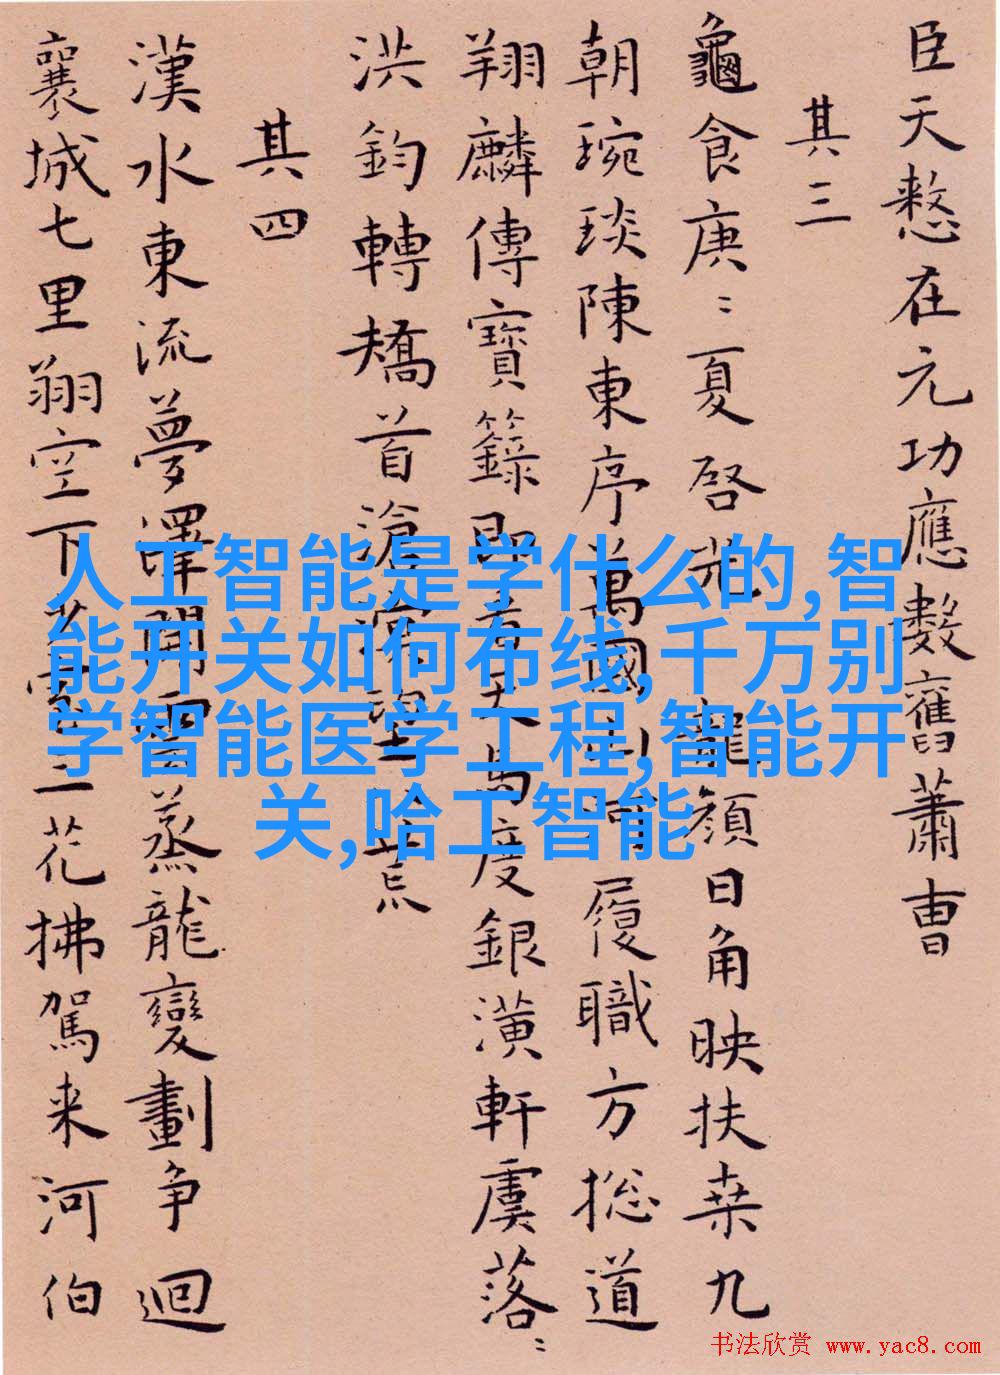 臣天憖在元功應數舊蕭曹
其三
龜食庚〻夏啓光龍顏日角映扶桒九
朝琬琰陳東序萬國山河履職方揔道
翔麟傳寶籙即看天馬度銀潢軒虞落〻
洪鈞轉矯首滄溟望荒
其四
漢水東流夢澤開雲蒸龍變劃争迴
襄城七里翔空下三花拂駕来河伯
人工智能是学什么的,智
能开关如何布线,千万别
学智能医学工程,智能开
关,哈工智能
书法欣赏 www.yac8.com